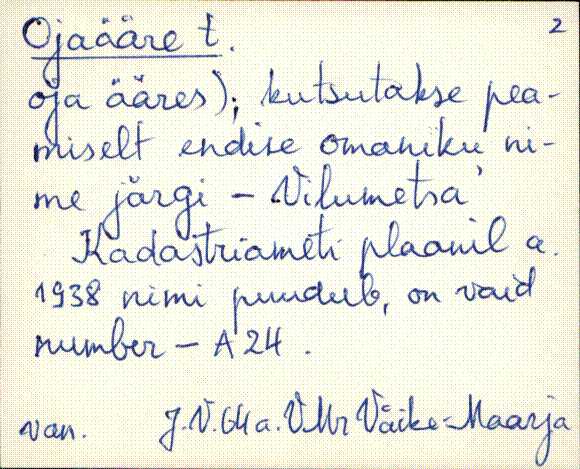 Ojaääre t. 2
oja ääres); kutsutakse pea-
miselt endise omaniku ni-
me järgi – Vilumetsa'
Kadastriameti plaanil a.
1938 nimi puudub, on vaid
number – A 24.
van. J.V. 64 a. VMr Väike-Maarja